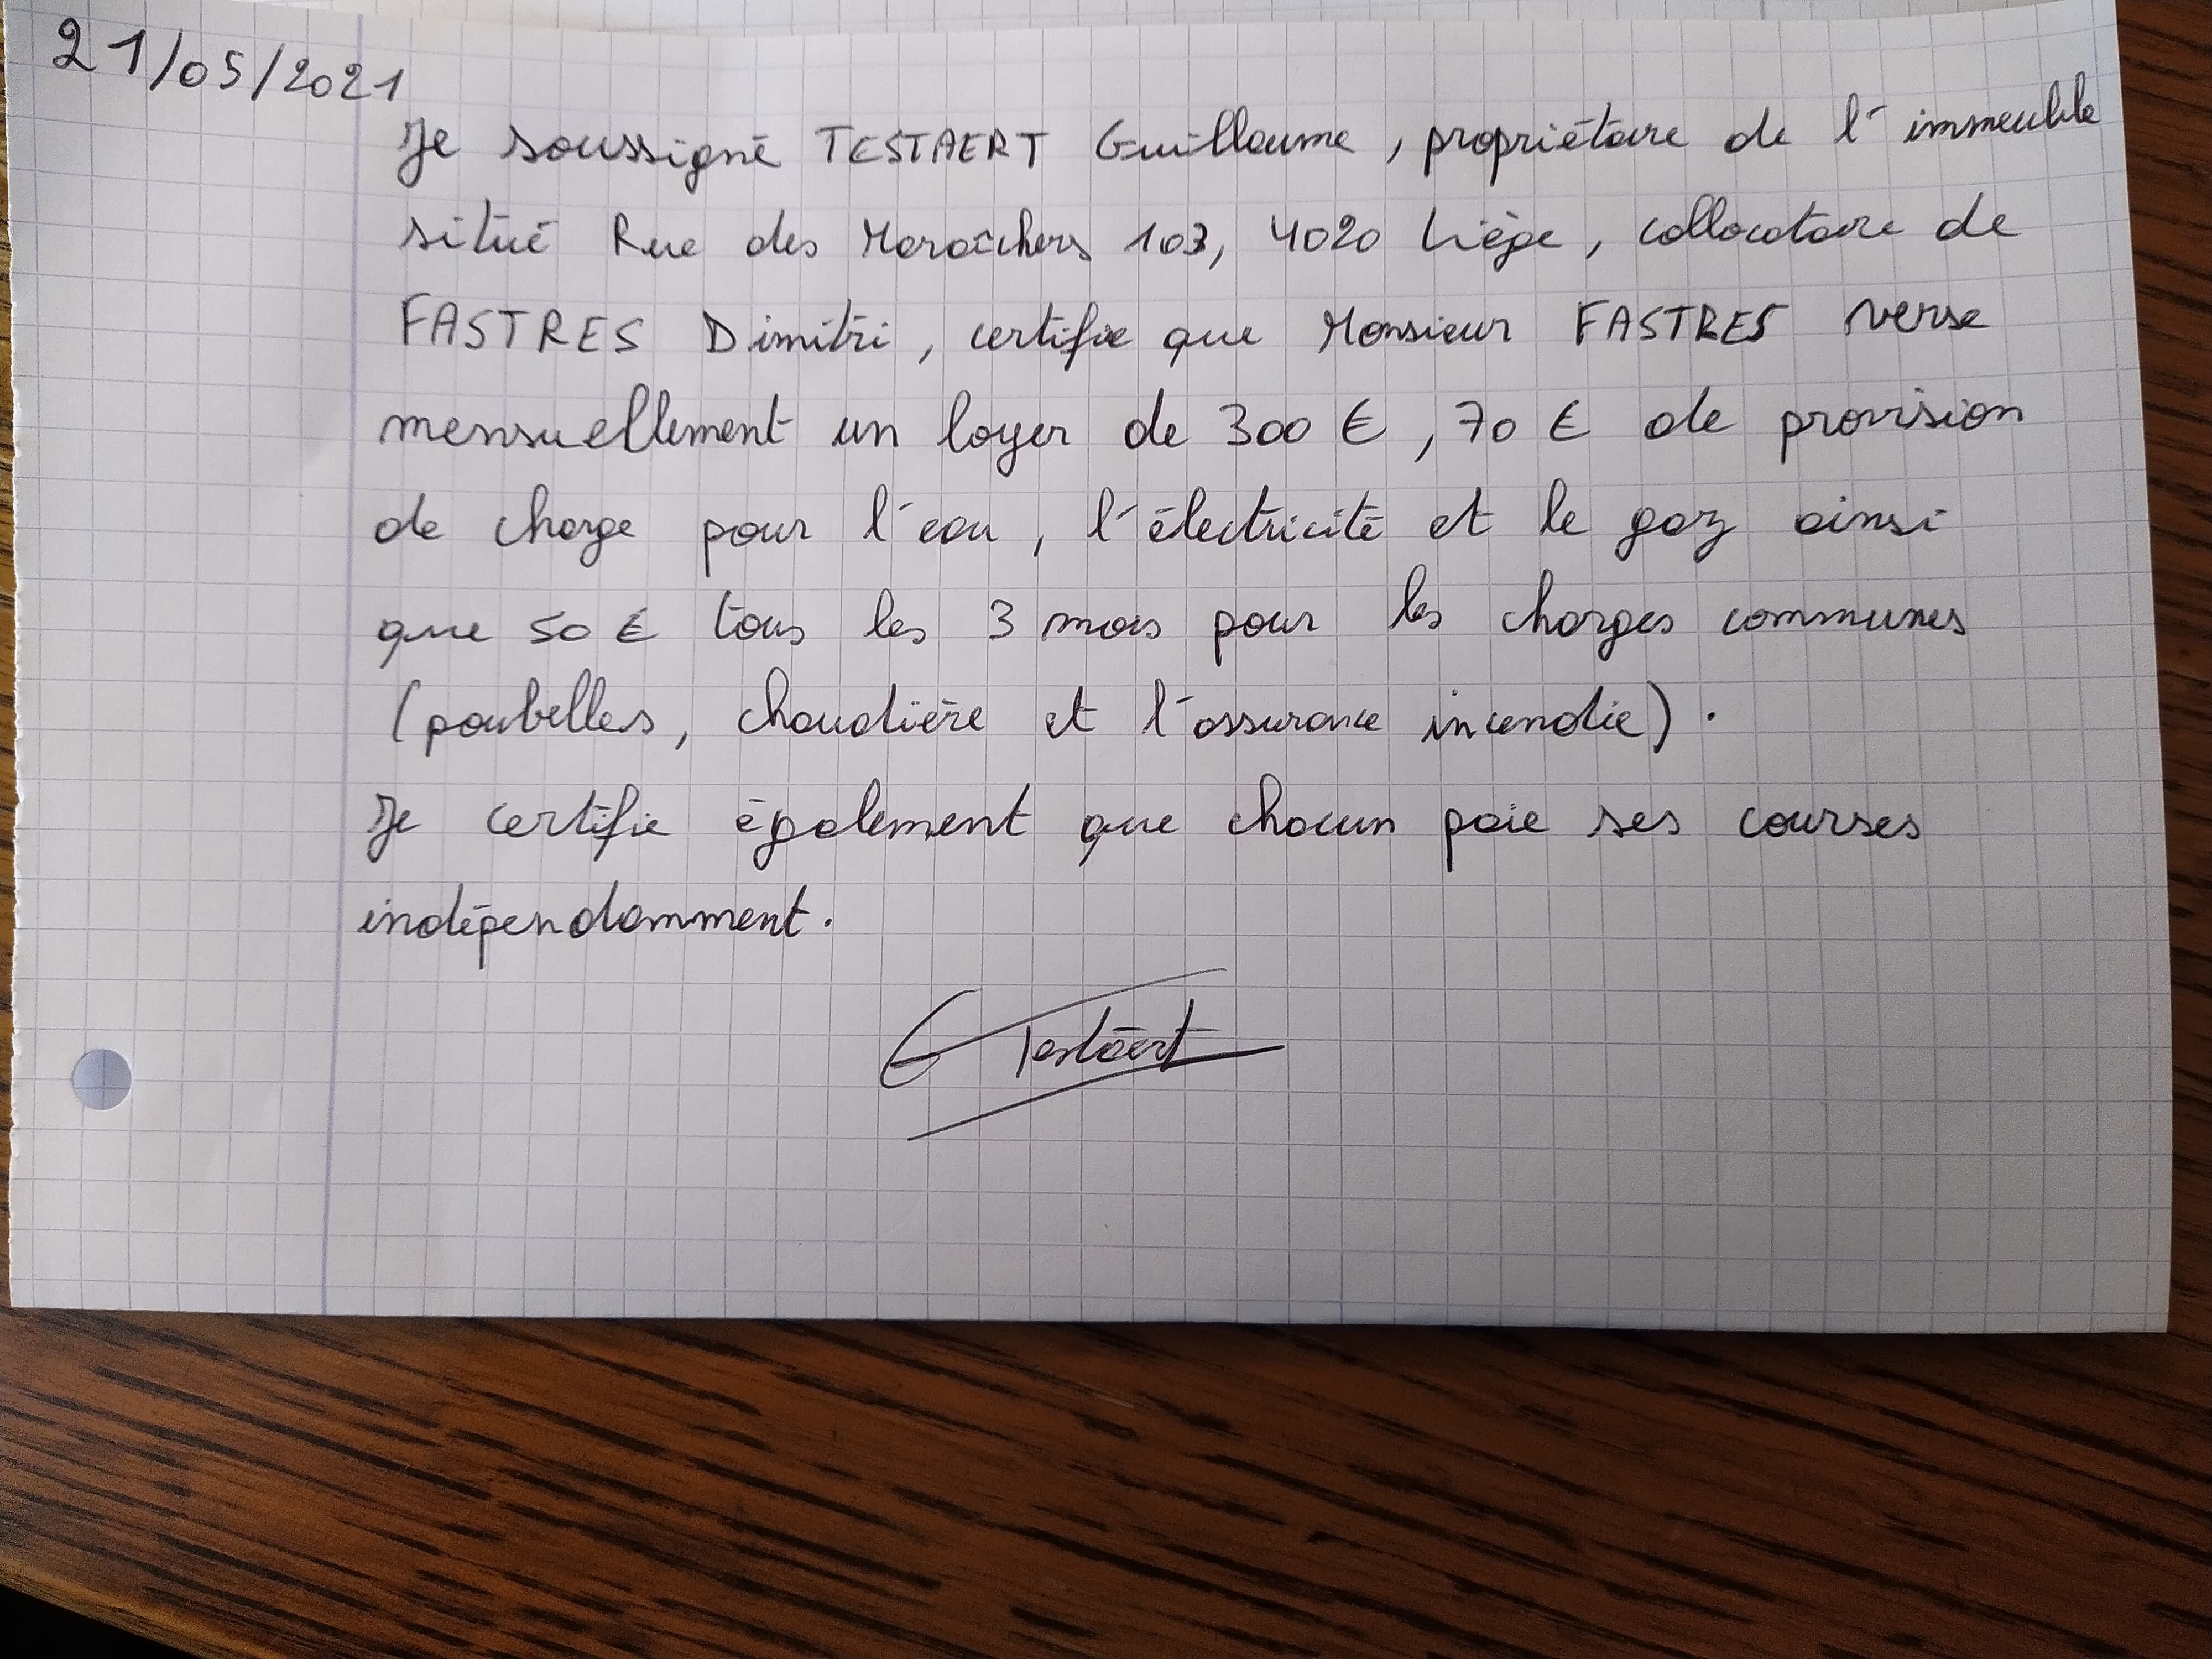 21/05/2021
Je soussigné TESTAERT Guillaume, propriétaire de l'immeuble
situé Rue des Maraîchers 103, 4020 Liège, collocataire de
FASTRES Dimitri, certifie que Monsieur FASTRES verse
mensuellement un loyer de 300 €, 70 € de provision
de charge pour l'eau, l'électricité et le gaz ainsi
que 50 € tous les 3 mois pour les charges communes
(poubelles, chaudière et l'assurance incendie).
Je certifie également que chacun paie ses courses
indépendamment.
G Testaert